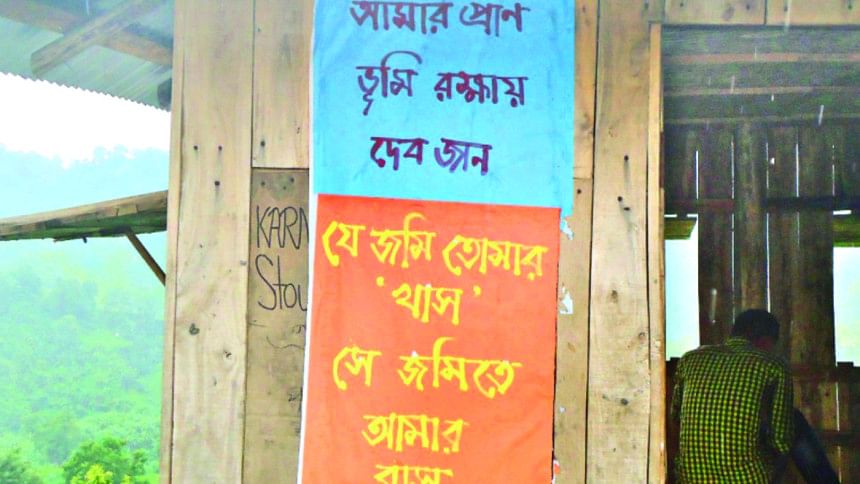 আমার প্রাণ
ভূমি রক্ষায়
দেব জান
যে জমি তোমার
'খাস'
সে জমিতে
আমার
বাস
KARN
Stou